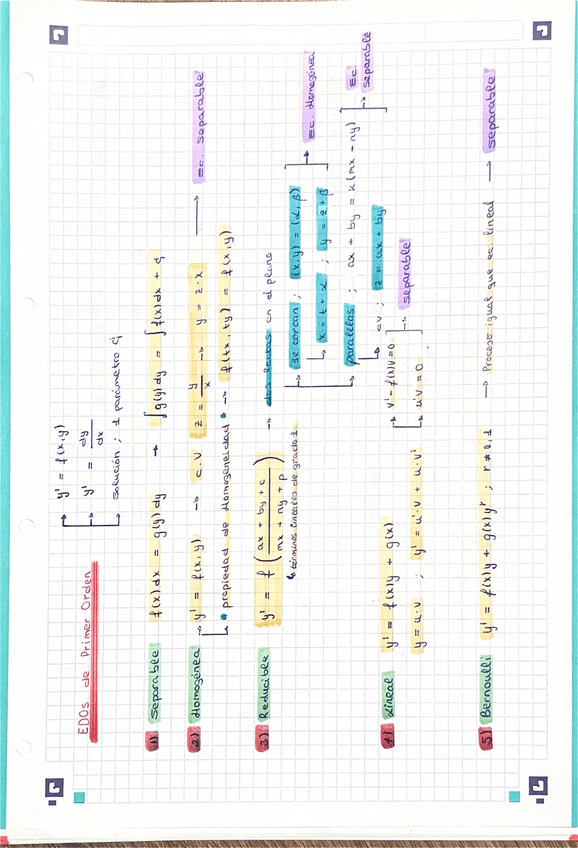 EDOs de Primer Orden
y' = f(x,y)
y' = dy/dx
Solución ; 1 parámetro C₁
1) Separable f(x)dx = g(y)dy → ∫g(y)dy = ∫f(x)dx + C₁
2) Homogénea y' = f(x,y) → C.V z = y/x → y = z·x → Ec. Separable
* propiedad de Homogeneidad * → f(tx, ty) = f(x,y)
3) Reducible y' = f((ax + by + c)/(mx + ny + p)) → dos Rectas en el plano
↳ términos lineales de grado 1
se cortan ; (x,y) = (α, β)
x = t + α ; y = z + β → Ec. Homogénea
paralelas ; ax + by = k(mx + ny)
cv ; z = ax + by → Ec. separable
4) Lineal y' = f(x)y + g(x)
y = u·v ; y' = u'·v + u·v'
v' - f(x)v = 0
u'v = 0 → separable
5) Bernoulli y' = f(x)y + g(x)yʳ ; r ≠ 0,1 → Proceso igual que ec. lineal → separable